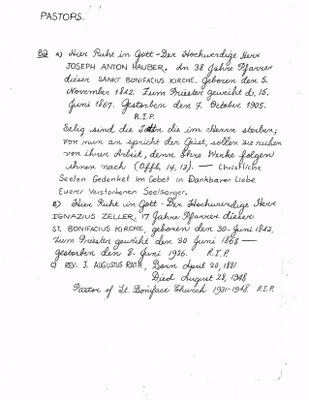 PASTORS.
B2 A) Hier Ruht in Gott - Der Hochwerdige Herr
JOSEPH ANTON HAUBER. An 38 Jahre Pfarrer
dieser SANKT BONIFACIUS KIRCHE. Geboren den 5.
November 1842. Zum Priester geweiht d. 15.
Juni 1867. Gestorben den 4. October 1905.
R.I.P.
Selig sind die Toten die im Herrn sterben;
von nun an spricht der Geist, sollen sie ruhen
von ihrer Arbeit, denn Ihre Werke folgen
ihnen nach (Offb, 14, 13). — Christliche
Seelen Gedenket im Gebet in Dankbarer Liebe
Eurer Verstorbenen Seelsorger.
B) Hier Ruht in Gott - Der Hochwurdige Herr
IGNAZIUS ZELLER, 17 Jahre Pfarrer dieser
ST. BONIFACIUS KIRCHE, geboren den 30. Juni 1842.
Zum Priester geweiht den 30 Juni 1868 —
gestorben den 8. Juni 1926. R.I.P.
C) REV. J. AUGUSTUS RATH, Born April 20, 1881.
Died August 28, 1948
Pastor of St. Boniface Church 1931-1948. R.I.P.